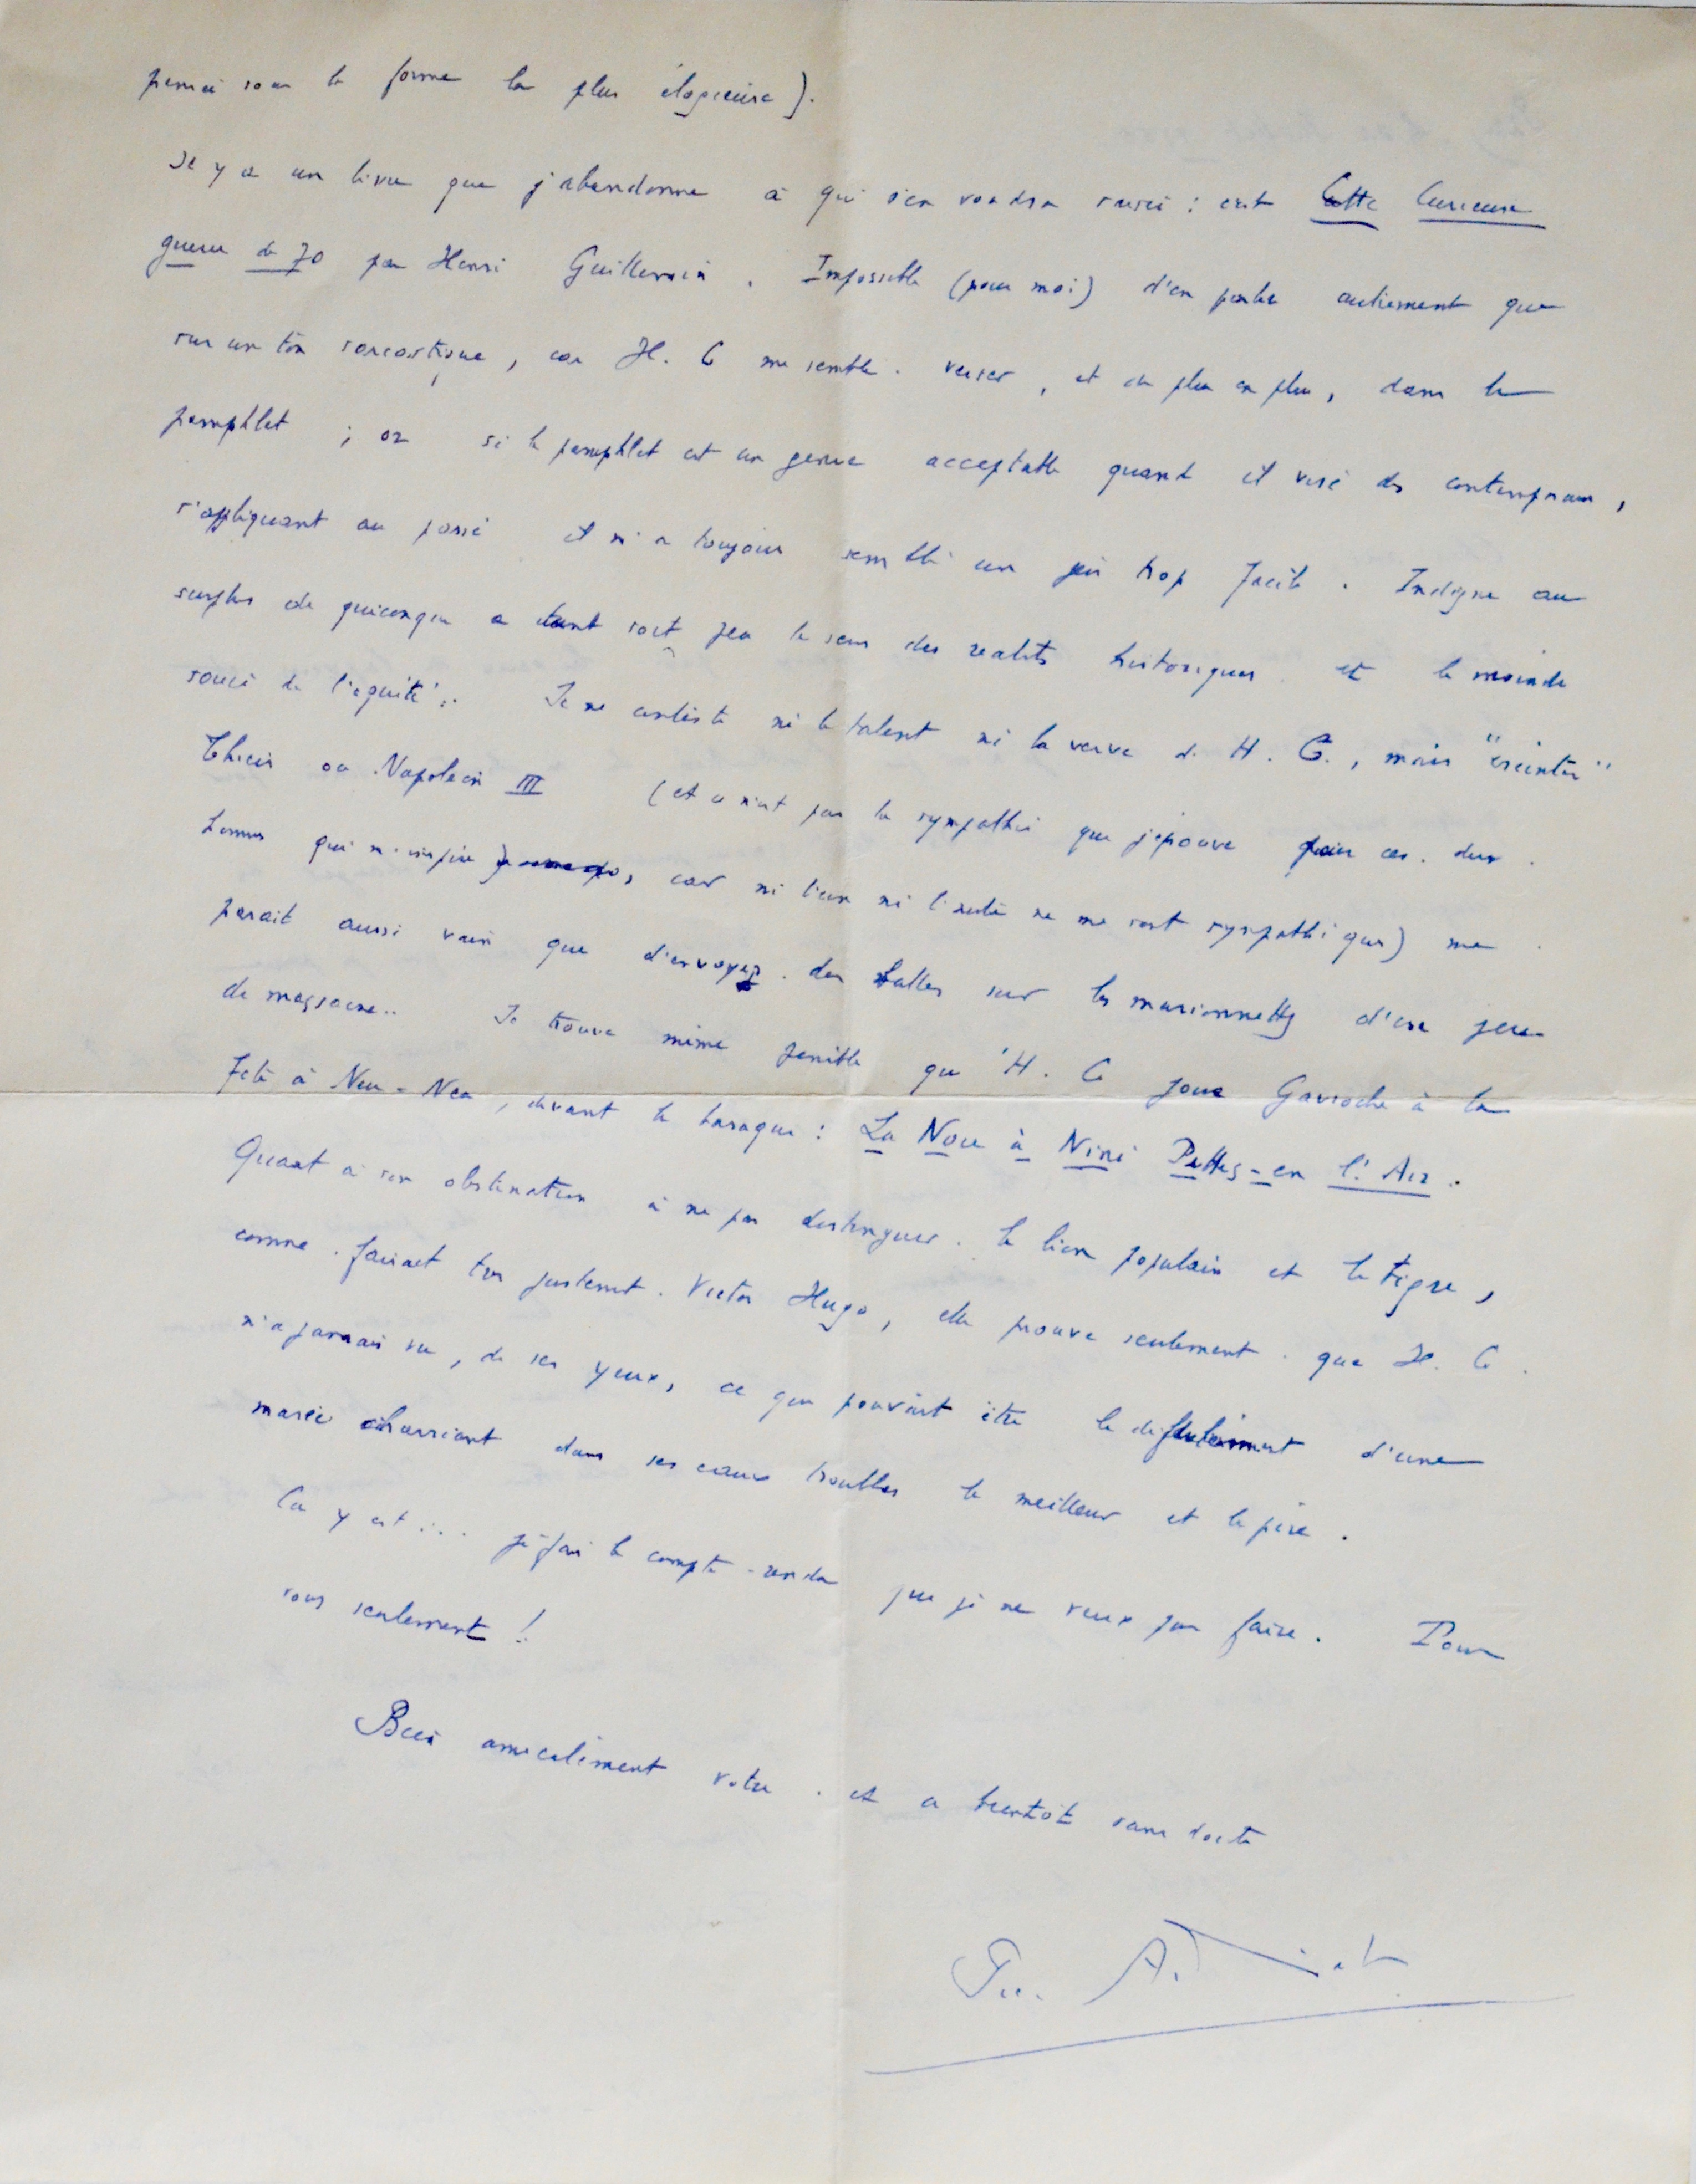 pensée sous la forme la plus élogieuse).
Il y a un livre que j'abandonne à qui s'en voudra saisir : c'est Cette Curieuse
guerre de 70 par Henri Guillemin. Impossible (pour moi) d'en parler autrement que
sur un ton sarcastique, car H. G me semble verser, et de plus en plus, dans le
pamphlet ; or si le pamphlet est un genre acceptable quand il vise des contemporains,
s'appliquant au passé il m'a toujours semblé un jeu trop facile. Indigne au
surplus de quiconque a tant soit peu le sens des réalités historiques et le moindre
souci de l'équité.. Je ne conteste ni le talent ni la verve de H. G., mais "éreinter"
Thiers ou Napoléon III (et ce n'est pas la sympathie que j'épouve pour ces deux
hommes qui m'inspire, car ni l'un ni l'autre ne me sont sympathiques) me
parait aussi vain que d'envoyer des balles sur les marionnettes d'un jeu
de massacre.. Je trouve même pénible qu'H. G joue Gavroche à la
Fête à Neu-Neu, devant la baraque : La Noce à Nini Pattes-en l'Air.
Quant à son obstination à ne pas distinguer le lion populaire et le tigre,
comme faisait très justement Victor Hugo, elle prouve seulement que H. G
n'a jamais vu, de ses yeux, ce que pouvait être le déferlement d'une
marée charriant dans ses eaux troubles le meilleur et le pire.
Ca y est... j'ai fait le compte-rendu que je ne veux pas faire. Pour
vous seulement !
Bien amicalement votre et a bientôt sans doute